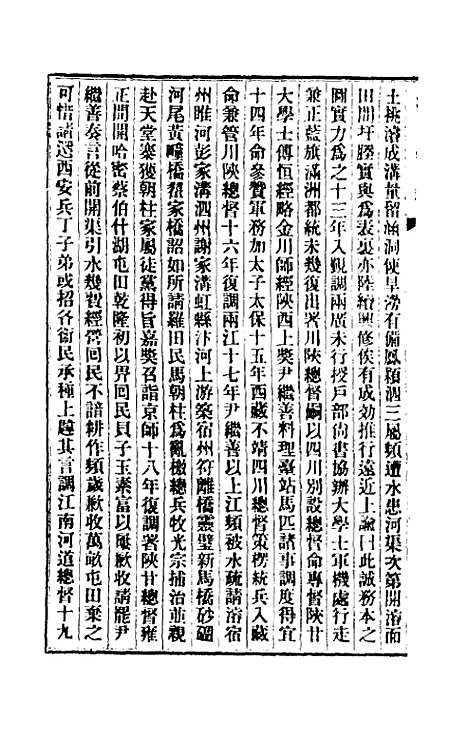 土挑濬成溝量留涵洞使旱澇有備鳳潁泗三屬頻遭水患河渠次第開濬而
田間圩塍實與爲表裏亦陸續興修俟有成效推行遠近上諭曰此誠務本之
圖實力爲之十三年入覲調兩廣未行授戶部尚書協辦大學士軍機處行走
兼正藍旗滿洲都統未幾復出署川陝總督嗣以四川別設總督命專督陝甘
大學士傅恒經略金川師經陝西上獎尹繼善料理臺站馬匹諸事調度得宜
十四年命參贊軍務加太子太保十五年西藏不靖四川總督策楞統兵入藏
命兼管川陝總督十六年復調兩江十七年尹繼善以上江頻被水疏請濬宿
州睢河彭家溝泗州謝家溝虹縣汴河上游築宿州符離橋靈璧新馬橋砂礓
河尾黃疃橋翟家橋詔如所請羅田民馬朝柱爲亂檄總兵牧光宗捕治並親
赴天堂寨獲朝柱家屬徒黨得旨嘉獎召詣京師十八年復調署陝甘總督雍
正間開哈密蔡伯什湖屯田乾隆初以畀回民貝子玉素富以屢歉收請罷尹
繼善奏言從前開渠引水幾費經營回民不諳耕作頻歲歉收萬畝屯田棄之
可惜請選西安兵丁子弟或招各衛民承種上韙其言調江南河道總督十九